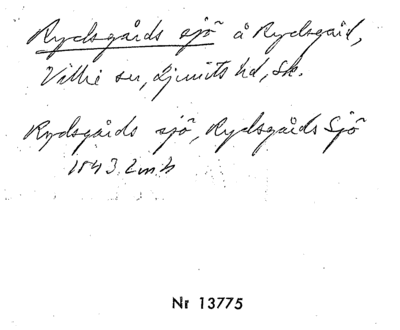 Rydsgårds sjö å Rydsgård,
Villie sn, Ljunits hd, Sk.
Rydsgårds sjö, Rydsgårds Sjö
1843 Lmh
Nr 13775